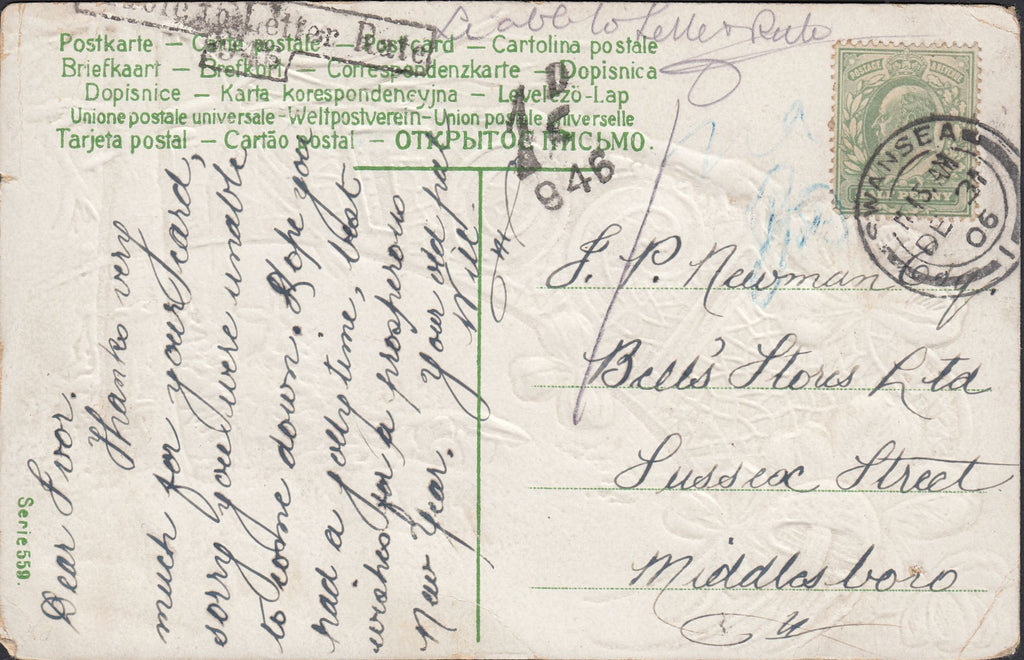 Liable to Letter Rate
Liable to Letter Rate
Postkarte – Carte postale – Postcard – Cartolina postale
Briefkaart – Brefkort – Correspondenzkarte – Dopisnica
Dopisnice – Karta korespondencyjna – Levelező-Lap
Unione postale universale-Weltpostverein-Union postale universelle
Tarjeta postal – Cartão postal – ОТКРЫТОЕ ПИСЬМО.
946
SWANSEA
DE 31
06
1
Dear Ivor.
Thanks very
much for your card,
sorry you were unable
to come down. Hope you
had a jolly time, best
wishes for a prosperous
New Year. Your old pal
Will.
J. P. Newman Esq.
Bells's Stores Ltd
Sussex Street
Middlesboro
Serie 559.